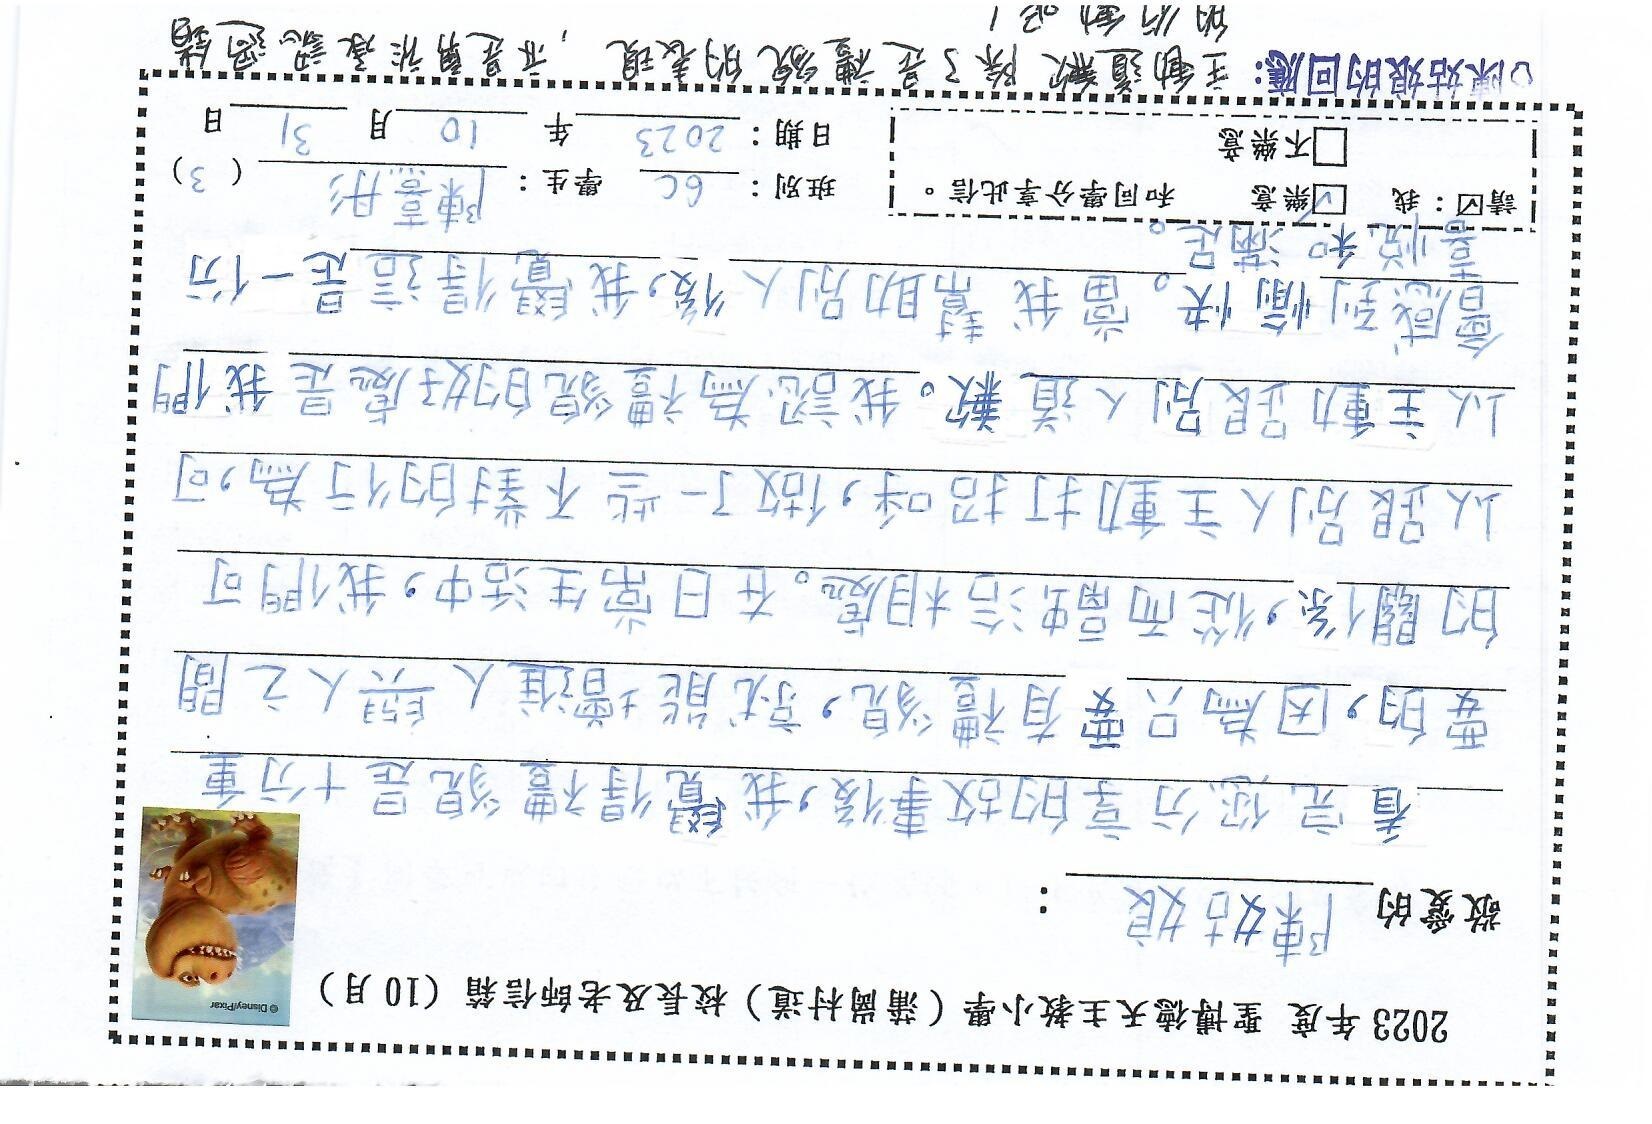 2023 年度 聖博德天主教小學（蒲崗村道）校長及老師信箱（10 月）
© Disney/Pixar
敬愛的 陳姑娘 ：
看完您分享的故事後，我覺得禮貌是十分重
要的，因為只要有禮貌，就能增進人與人之間
的關係，從而融洽相處。在日常生活中，我們可
以跟別人主動打招呼，做了一些不對的行為，可
以主動跟別人道歉。我認為禮貌的好處是我們
會感到愉快。當我幫助別人後，我覺得這是一份
喜悅和滿足。
請☑：我 ☑樂意 和同學分享此信。
□不樂意
班別： 6C 學生： 陳熹彤 ( 3 )
日期： 2023 年 10 月 31 日
陳姑娘的回應：主動道歉除了是禮貌的表現，亦是勇於承認過錯
的行動呢！